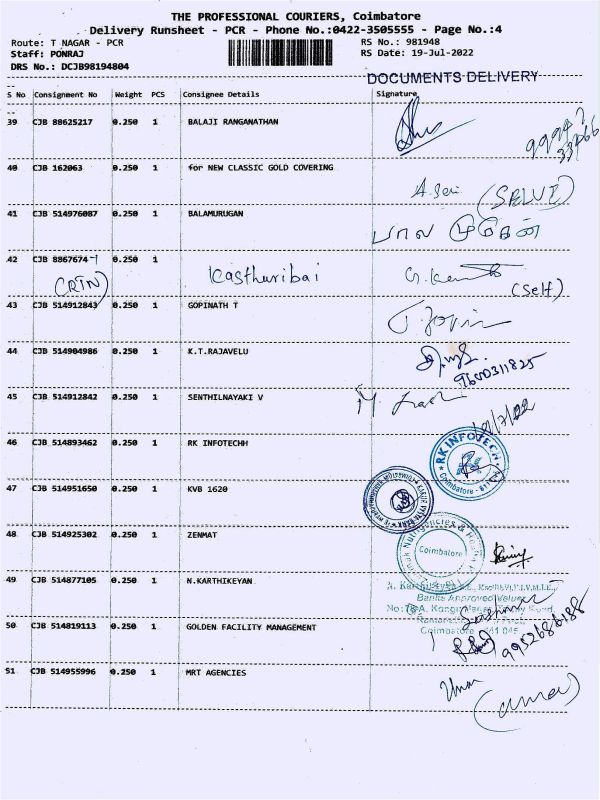 THE PROFESSIONAL COURIERS, Coimbatore
Delivery Runsheet - PCR - Phone No.:0422-3505555 - Page No.:4
Route: T NAGAR - PCR RS No.: 981948
Staff: PONRAJ RS Date: 19-Jul-2022
DRS No.: DCJB98194804
DOCUMENTS DELIVERY
S No Consignment No Weight PCS Consignee Details Signature
39 CJB 88625217 0.250 1 BALAJI RANGANATHAN
40 CJB 162063 0.250 1 for NEW CLASSIC GOLD COVERING
(SELVI)
41 CJB 514976087 0.250 1 BALAMURUGAN
42 CJB 8867674 0.250 1 Kasthuribai
(self)
43 CJB 514912843 0.250 1 GOPINATH T
44 CJB 514904986 0.250 1 K.T.RAJAVELU
9600311825
45 CJB 514912842 0.250 1 SENTHILNAYAKI V
46 CJB 514893462 0.250 1 RK INFOTECHH
RK INFOTECH
Coimbatore
47 CJB 514951650 0.250 1 KVB 1620
48 CJB 514925302 0.250 1 ZENMAT
Coimbatore
49 CJB 514877105 0.250 1 N.KARTHIKEYAN
Banks Approved Valuer
50 CJB 514819113 0.250 1 GOLDEN FACILITY MANAGEMENT
Coimbatore
9952686488
51 CJB 514955996 0.250 1 MRT AGENCIES